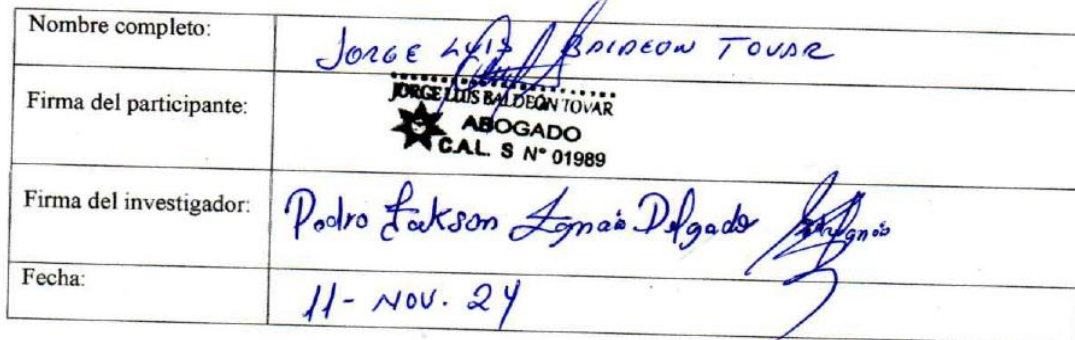 Nombre completo:
JORGE LUIS BALDEON TOVAR
Firma del participante:
JORGE LUIS BALDEÓN TOVAR
ABOGADO
C.A.L. S N° 01989
Firma del investigador:
Pedro Jakson Ignacio Delgado
Fecha:
11 - NOV. 24